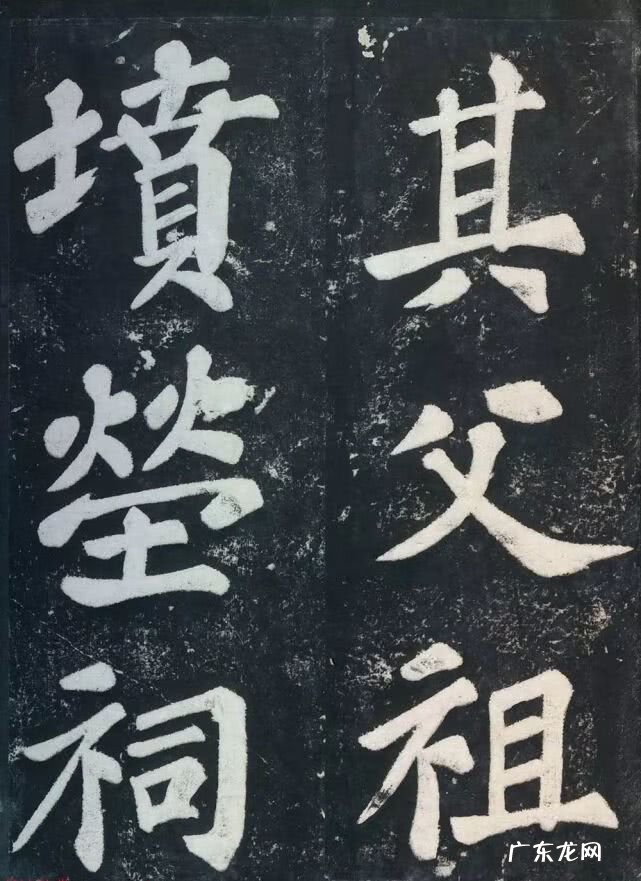 其父祖
墳塋祠
广东龙网